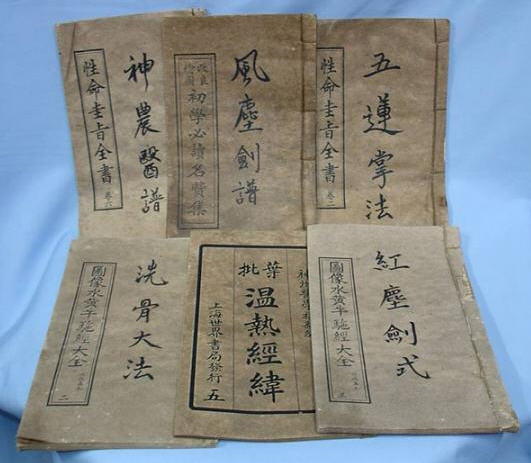 神農醫譜
性命圭旨全書
卷六
風塵劍譜
初學必讀名賢集
五蓮掌法
性命圭旨全書
卷二
洗骨大法
圖像水黃牛駝經大全
二
葉批
温熱經緯
上海世界書局發行
五
紅塵劍式
圖像水黃牛駝經大全